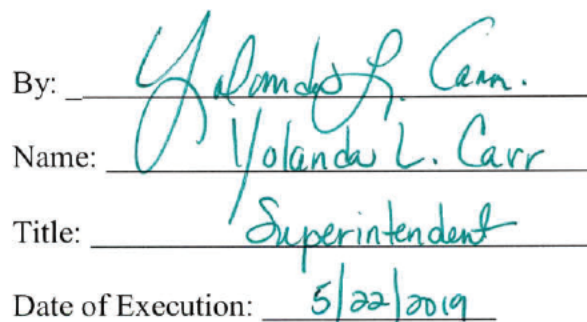 By: Yolanda L. Carr.
Name: Yolanda L. Carr
Title: Superintendent
Date of Execution: 5/22/2019